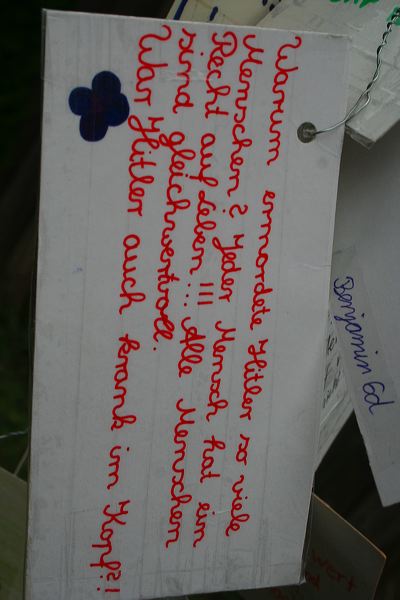 Warum ermordete Hitler so viele
Menschen? Jeder Mensch hat ein
Recht auf Leben!!! Alle Menschen
sind gleichwertvoll.
War Hitler auch krank im Kopf?!
Benjamin 6d
wert